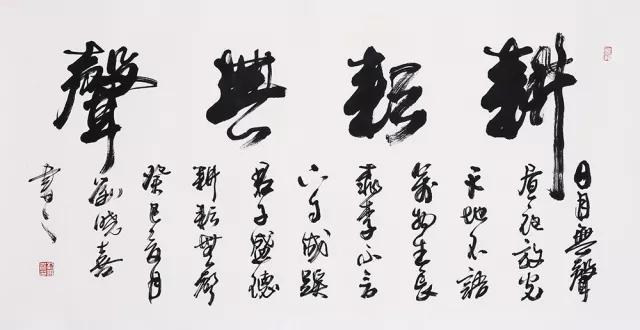 耕耘無聲
日月無聲
昼夜放光
天地不語
萬物生長
桃李不言
下自成蹊
君子盛德
耕耘無聲
癸巳夏月
劉曉喜
書之